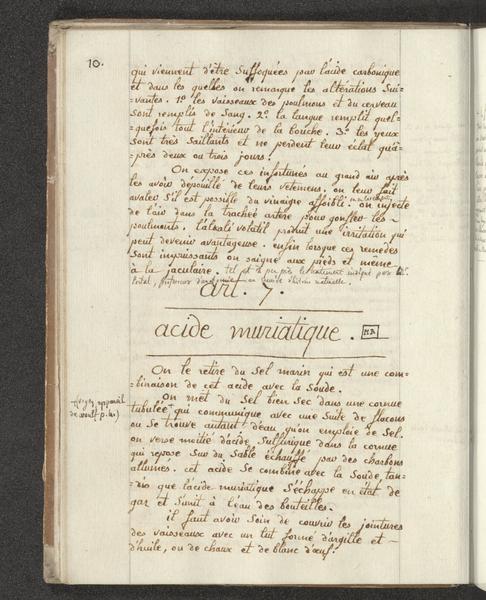 10.
qui viennent d'être Suffoquées par l'acide carbonique
et dans les quelles on remarque les altérations Sui=
=vantes. 1º les vaisseaux des poulmons et du cerveau
Sont remplis de Sang. 2º la langue remplit quel=
=quefois tout l'intérieur de la bouche. 3º les yeux
Sont très Saillants et ne perdent leur éclat qu'a=
=près deux ou trois jours.
On expose ces infortunés au grand air après
les avoir dépouillé de leurs vetemens. on leur fait
avaler S'il est possible du vinaigre affoibli. on injecte
de l'air dans la trachée artère pour gonfler les
poulmons. l'alkali volatil produit une irritation qui
peut devenir avantageuse. enfin lorsque ces remedes
Sont impuissants on saigne aux pieds et même
à la jugulaire. tel est à peu près le traitement indiqué par
portal, professeur d'anatomie au d'histoire naturelle.
art. 7.
acide muriatique.
On le retire du Sel marin qui est une com=
=binaison de cet acide avec la Soude.
On met du Sel bien Sec dans une cornue
tubulée + qui communique avec une Suite de flacons
ou Se trouve autant d'eau qu'on emploie de Sel.
+ (voyez appareil
de woulf p. )
on verse moitié d'acide Sulfurique dans la cornue
qui repose Sur du Sable échauffé par des charbons
allumés. cet acide Se combine avec la Soude, tan=
=dis que l'acide muriatique S'échappe en état de
gaz et S'unit à l'eau des bouteilles.
il faut avoir Soin de couvrir les jointures
des vaisseaux avec un lut formé d'argille et
d'huile, ou de chaux et de blanc d'œuf.